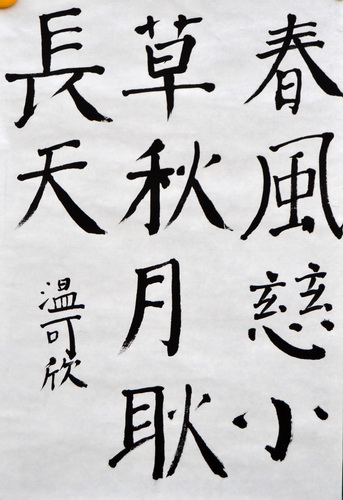 春風慈小
草秋月耿
長天
温可欣